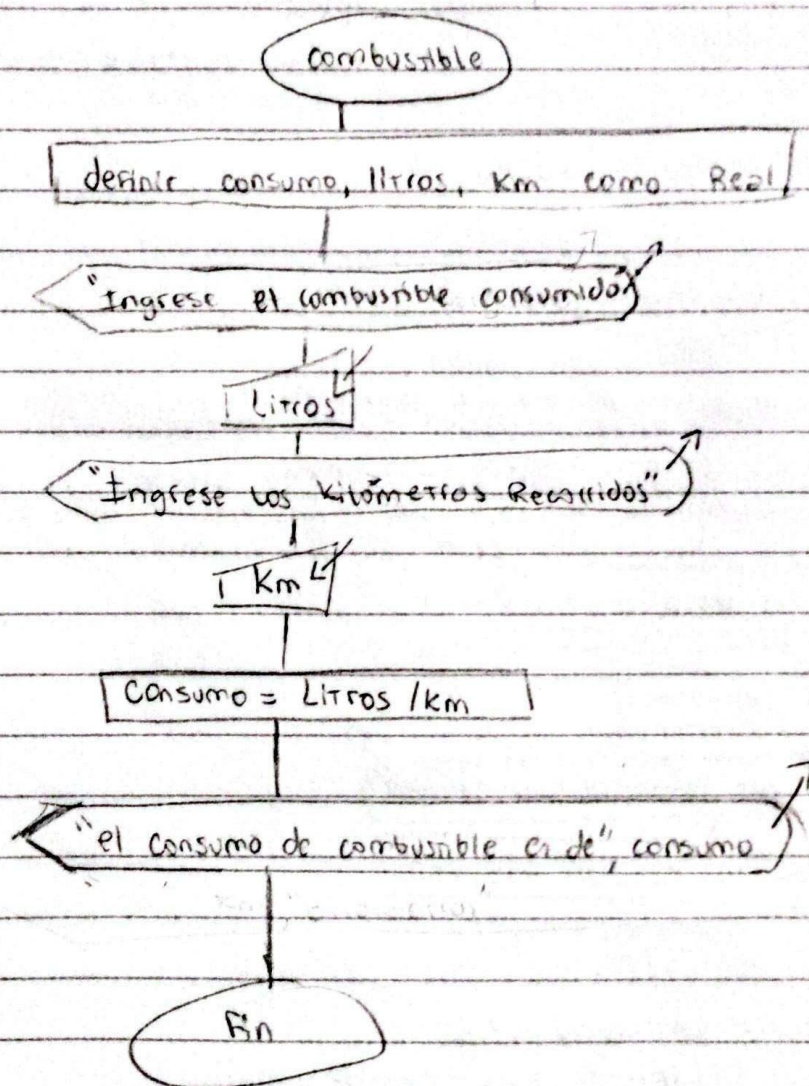 combustible
definir consumo, litros, Km como Real,
"Ingrese el combustible consumido"
Litros
"Ingrese los kilómetros Recorridos"
Km
Consumo = Litros /km
"el consumo de combustible es de", consumo
Fin